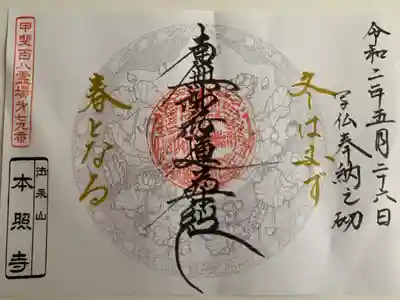 令和二年五月二十八日
写仏奉納之砌
冬は必ず
南無妙法蓮華経
春となる
甲斐百八霊場第七九番
法永山
本照寺